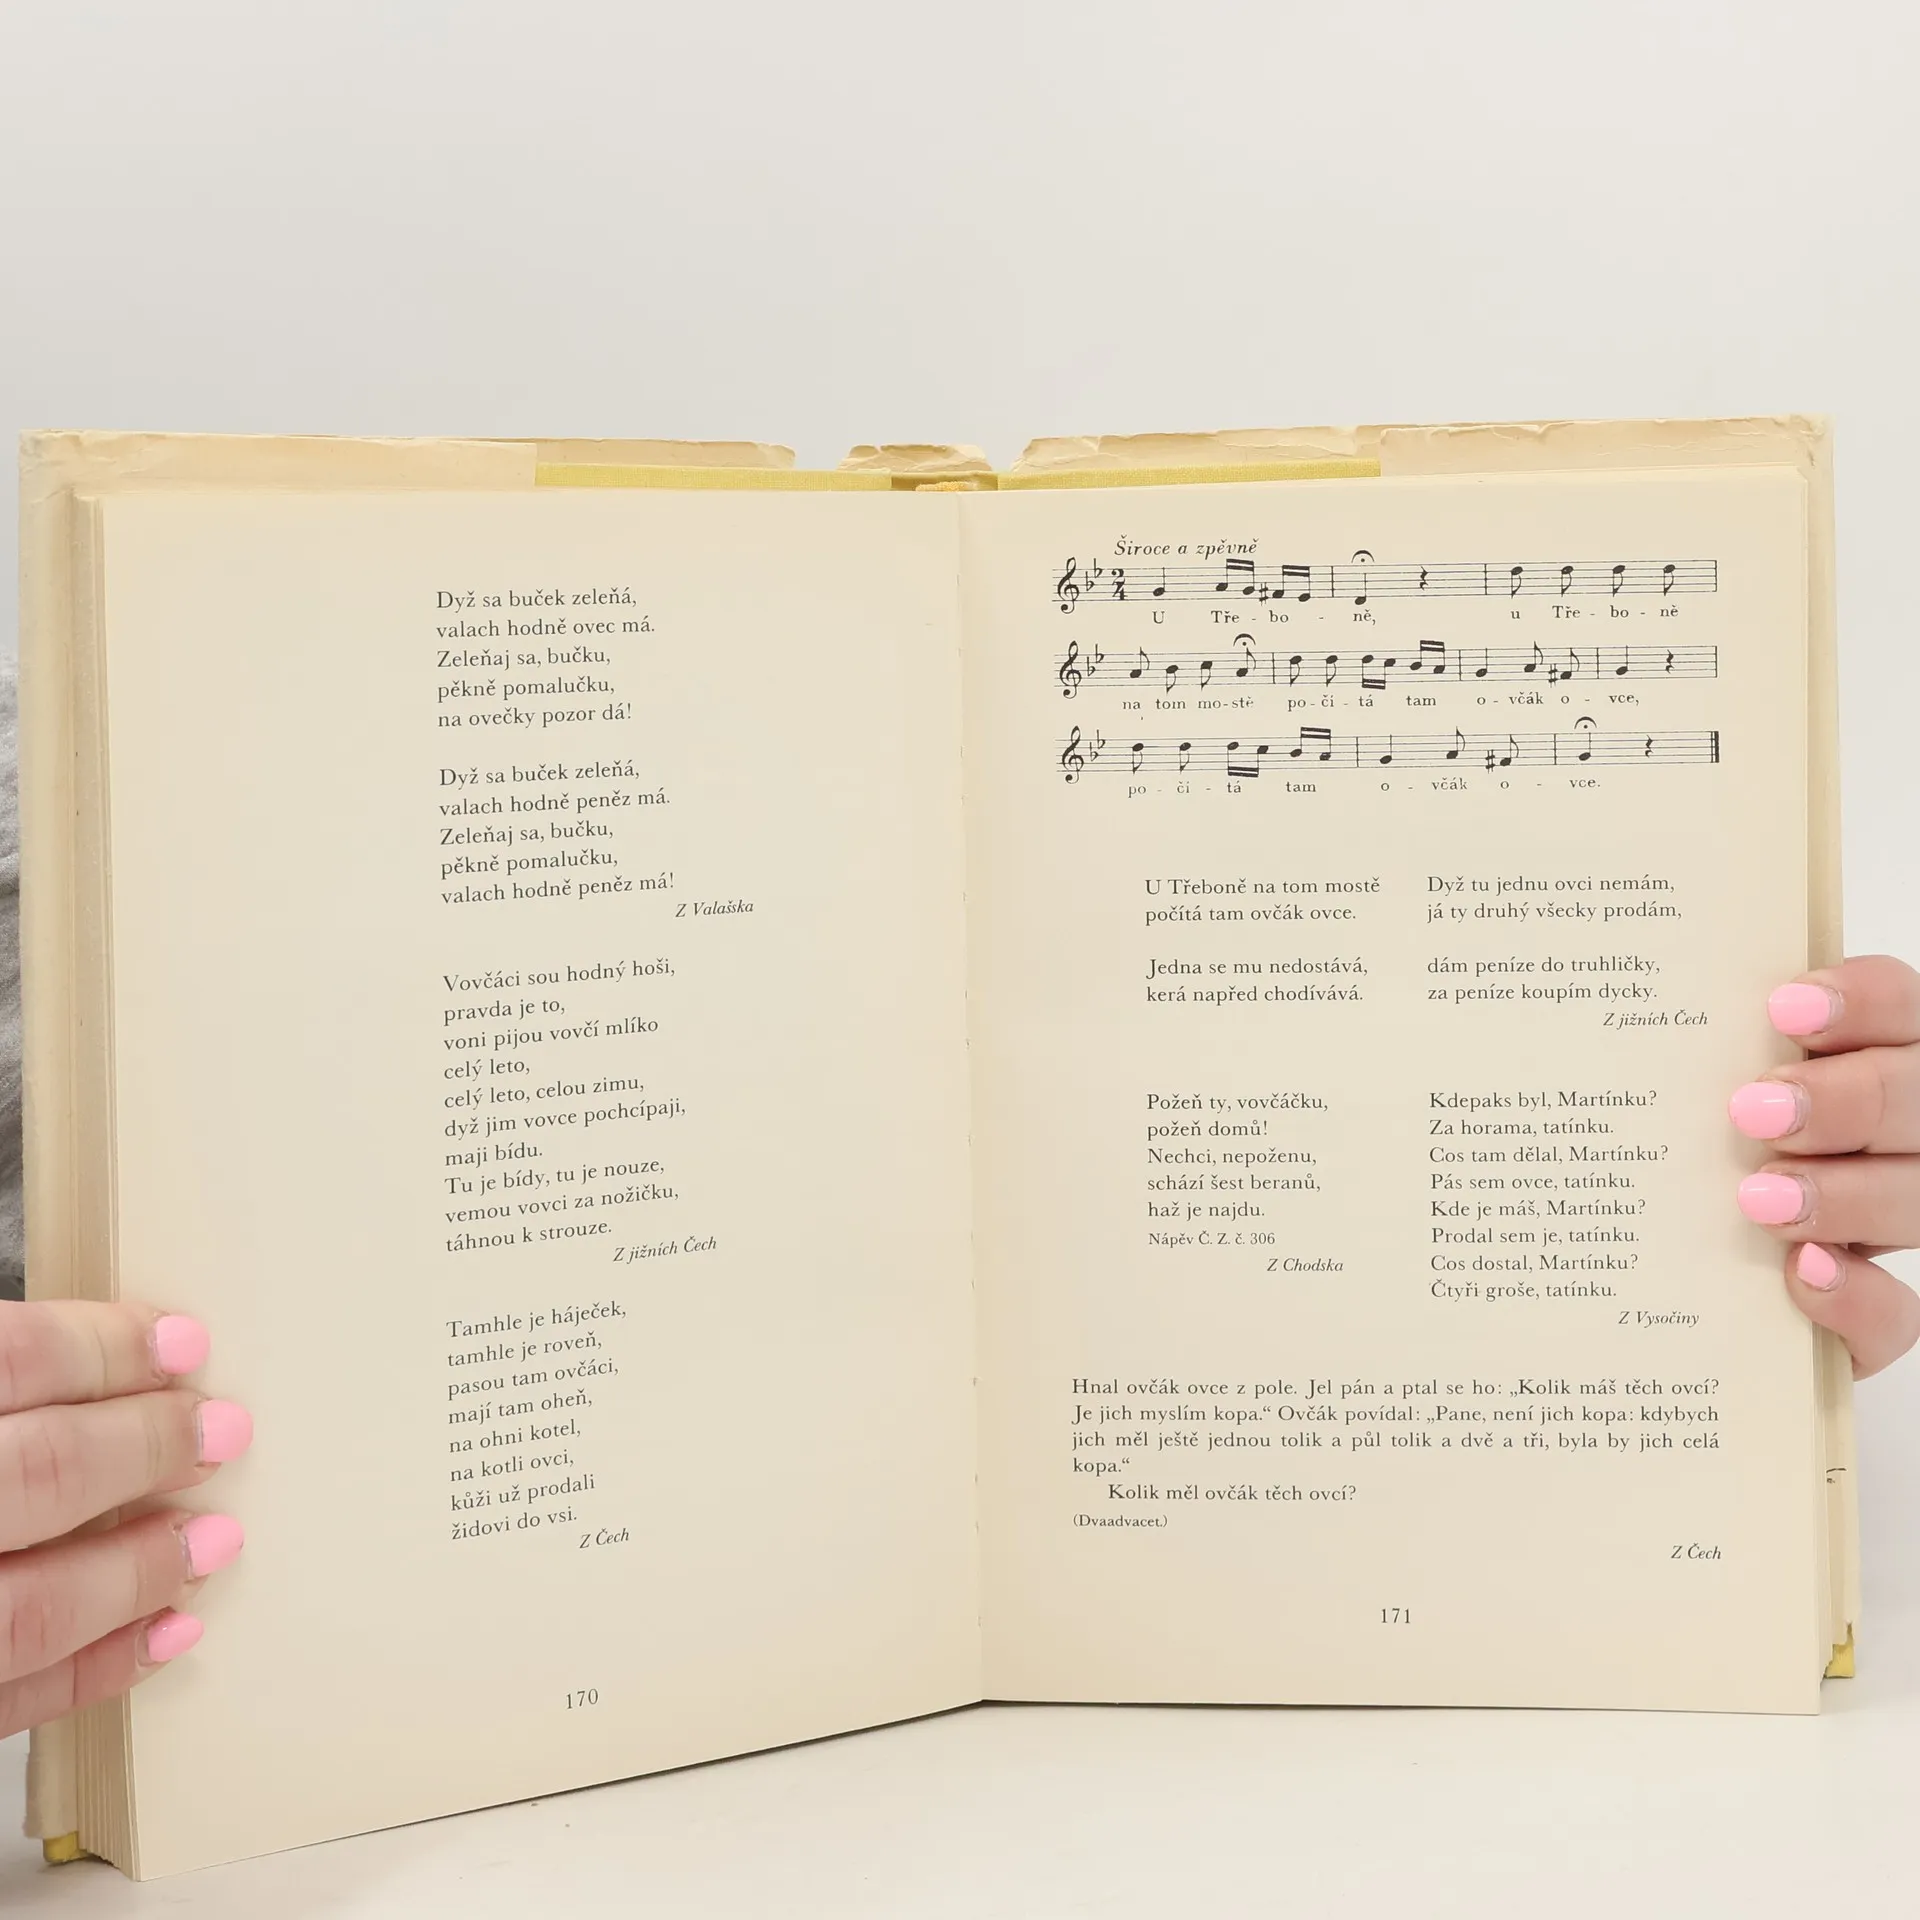 Dyž sa buček zeleňá,
valach hodně ovec má.
Zeleňaj sa, bučku,
pěkně pomalučku,
na ovečky pozor dá!
Dyž sa buček zeleňá,
valach hodně peněz má.
Zeleňaj sa, bučku,
pěkně pomalučku,
valach hodně peněz má!
Z Valašska
Vovčáci sou hodný hoši,
pravda je to,
voni pijou vovčí mlíko
celý leto,
celý leto, celou zimu,
dyž jim vovce pochcípaji,
maji bídu.
Tu je bídy, tu je nouze,
vemou vovci za nožičku,
táhnou k strouze.
Z jižních Čech
Tamhle je háječek,
tamhle je roveň,
pasou tam ovčáci,
mají tam oheň,
na ohni kotel,
na kotli ovci,
kůži už prodali
židovi do vsi.
Z Čech
170
Široce a zpěvně
2
4
U Tře - bo - ně, u Tře - bo - ně
na tom mo-stě po-či - tá tam o - včák o - vce,
po - či - tá tam o - včák o - vce.
U Třeboně na tom mostě
počítá tam ovčák ovce.
Jedna se mu nedostává,
kerá napřed chodívává.
Dyž tu jednu ovci nemám,
já ty druhý všecky prodám,
dám peníze do truhličky,
za peníze koupím dycky.
Z jižních Čech
Požeň ty, vovčáčku,
požeň domů!
Nechci, nepoženu,
schází šest beranů,
haž je najdu.
Nápěv Č. Z. č. 306
Z Chodska
Kdepaks byl, Martínku?
Za horama, tatínku.
Cos tam dělal, Martínku?
Pás sem ovce, tatínku.
Kde je máš, Martínku?
Prodal sem je, tatínku.
Cos dostal, Martínku?
Čtyři groše, tatínku.
Z Vysočiny
Hnal ovčák ovce z pole. Jel pán a ptal se ho: „Kolik máš těch ovcí?
Je jich myslím kopa.“ Ovčák povídal: „Pane, není jich kopa: kdybych
jich měl ještě jednou tolik a půl tolik a dvě a tři, byla by jich celá
kopa.“
Kolik měl ovčák těch ovcí?
(Dvaadvacet.)
Z Čech
171